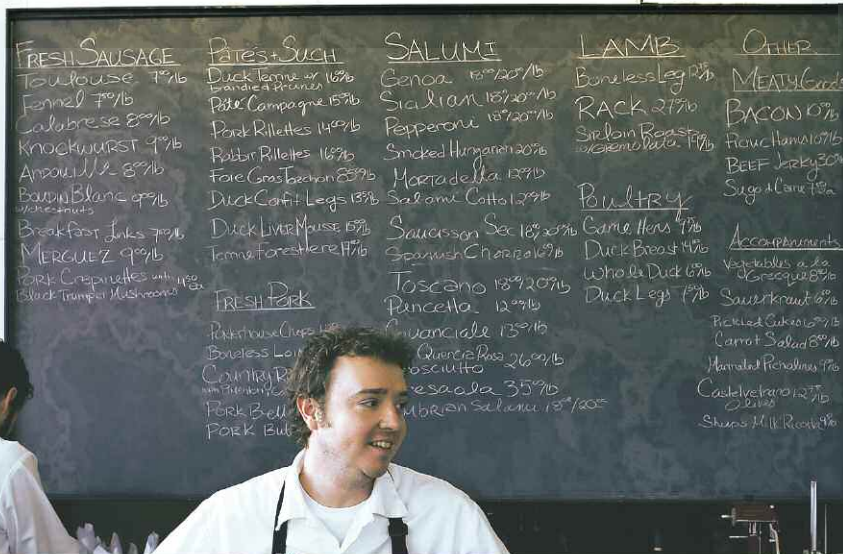 FRESH SAUSAGE
Toulouse 7⁰⁰/lb
Fennel 7⁰⁰/lb
Calabrese 8⁰⁰/lb
KNOCKWURST 9⁰⁰/lb
ANDOUILLE 8⁰⁰/lb
BOUDIN BLANC 9⁰⁰/lb
w/chestnuts
Breakfast Links 7⁰⁰/lb
MERGUEZ 9⁰⁰/lb
PORK Crepinettes with
Black Trumpet Mushrooms
Pâtés + Such
Duck Terrine w/ 16⁰⁰/lb
brandied Prunes
Pâté Campagne 15⁰⁰/lb
Pork Rillettes 14⁰⁰/lb
Rabbit Rillettes 16⁰⁰/lb
Foie Gras Torchon 85⁰⁰/lb
Duck Confit Legs 13⁰⁰/lb
Duck LIVER Mousse 15⁰⁰/lb
Terrine Forestiere
FRESH Pork
Porterhouse Chops
Boneless Loin
Country
PORK Bell
PORK But
SALUMI
Genoa 18⁰⁰/20⁰⁰/lb
Sicilian 18⁰⁰/20⁰⁰/lb
Pepperoni 18⁰⁰/20⁰⁰/lb
Smoked Hungarian 20⁰⁰/lb
Mortadella 12⁰⁰/lb
Salami Cotto 12⁰⁰/lb
Saucisson Sec 18⁰⁰/20⁰⁰/lb
Spanish Chorizo 16⁰⁰/lb
Toscano 18⁰⁰/20⁰⁰/lb
Pancetta 12⁰⁰/lb
Guanciale 13⁰⁰/lb
Quercia Rosa 26⁰⁰/lb
osciutto
esaola 35⁰⁰/lb
mbrian Salami 18⁰⁰/20⁰⁰
LAMB
Boneless Leg
RACK 27⁰⁰/lb
Sirloin Roast
w/Gremolata
Poultry
Game Hens
Duck Breast
Whole Duck
Duck Legs
OTHER
MEATY Goods
BACON 10⁰⁰/lb
Picnic Hams 10⁰⁰/lb
BEEF Jerky 30⁰⁰
Sugo di Carne
Accompaniments
Vegetables a la
Grecque 8⁰⁰/lb
Sauerkraut 6⁰⁰/lb
Pickled Cukes 6⁰⁰/lb
Carrot Salad 8⁰⁰/lb
Marinated Picholines 9⁰⁰/lb
Castelvetrano
Olives
Sheeps Milk Ricotta